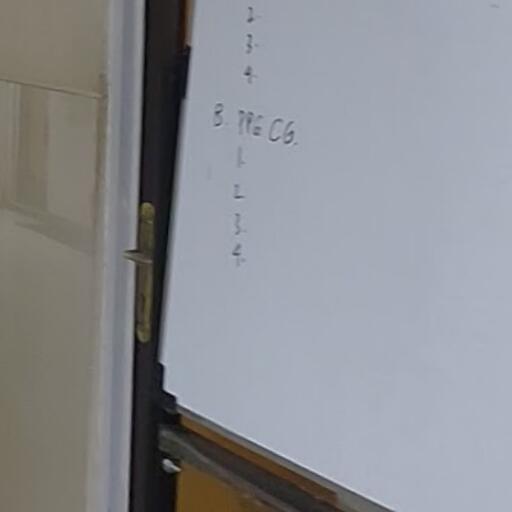 2.
3.
4.
B. PPG CG.
1.
2.
3.
4.